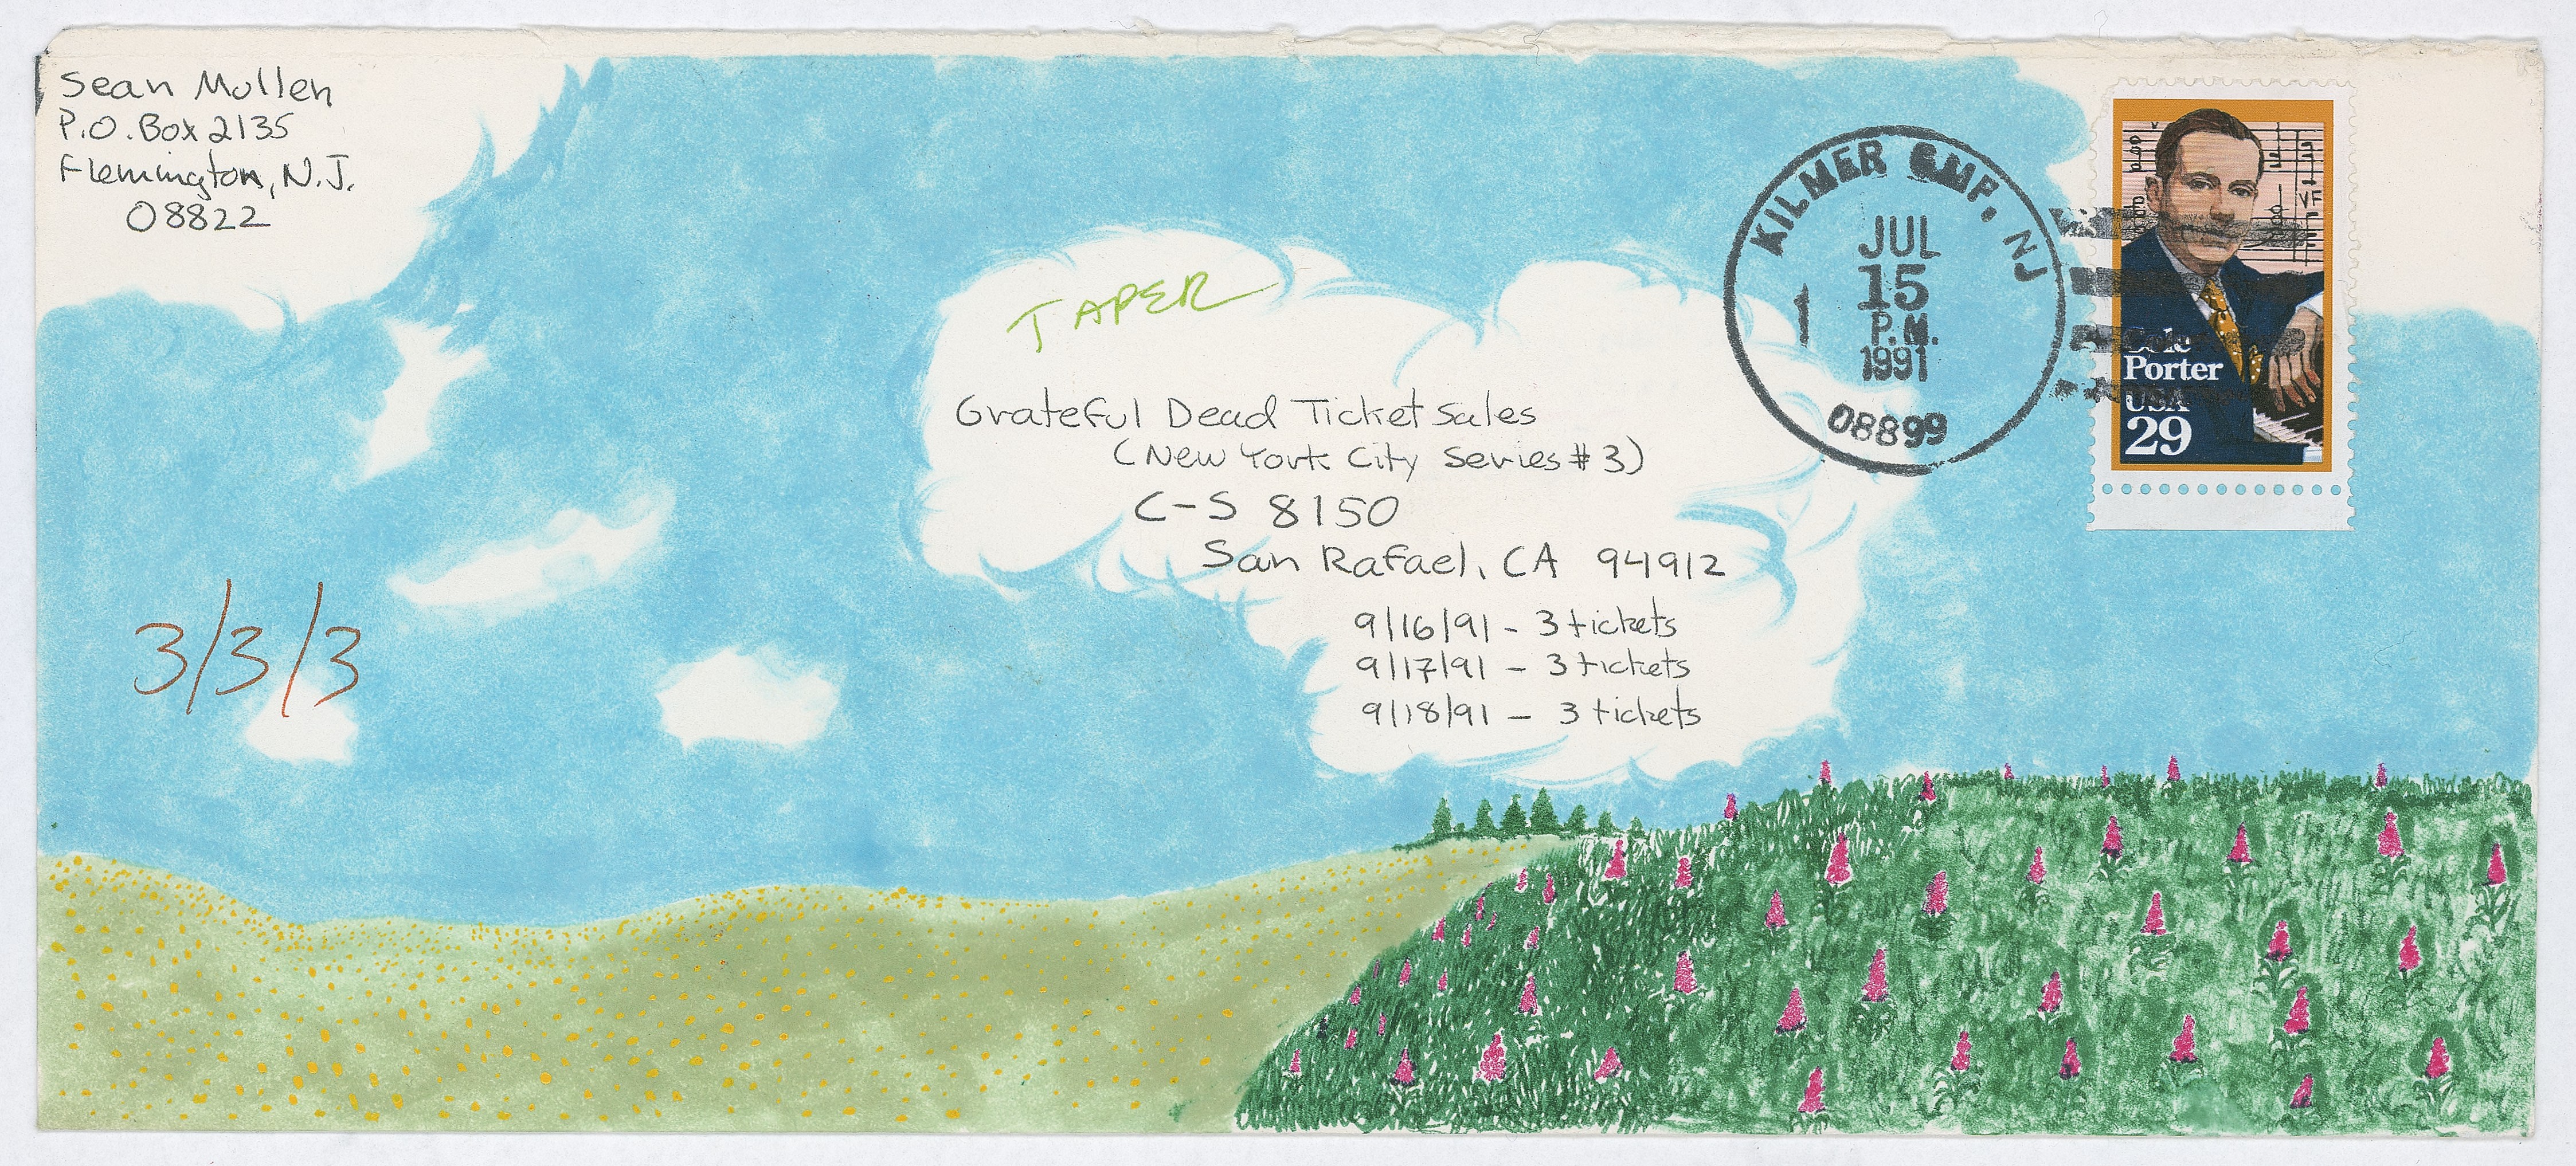 Sean Mullen
P.O. Box 2135
Flemington, N.J.
08822
TAPER
Grateful Dead Ticket Sales
(New York City Series #3)
C-S 8150
San Rafael, CA 94912
9/16/91 - 3 tickets
9/17/91 - 3 tickets
9/18/91 - 3 tickets
3/3/3
KILMER GMF, NJ
JUL
15
P.M.
1991
1
08899
Cole
Porter
USA
29